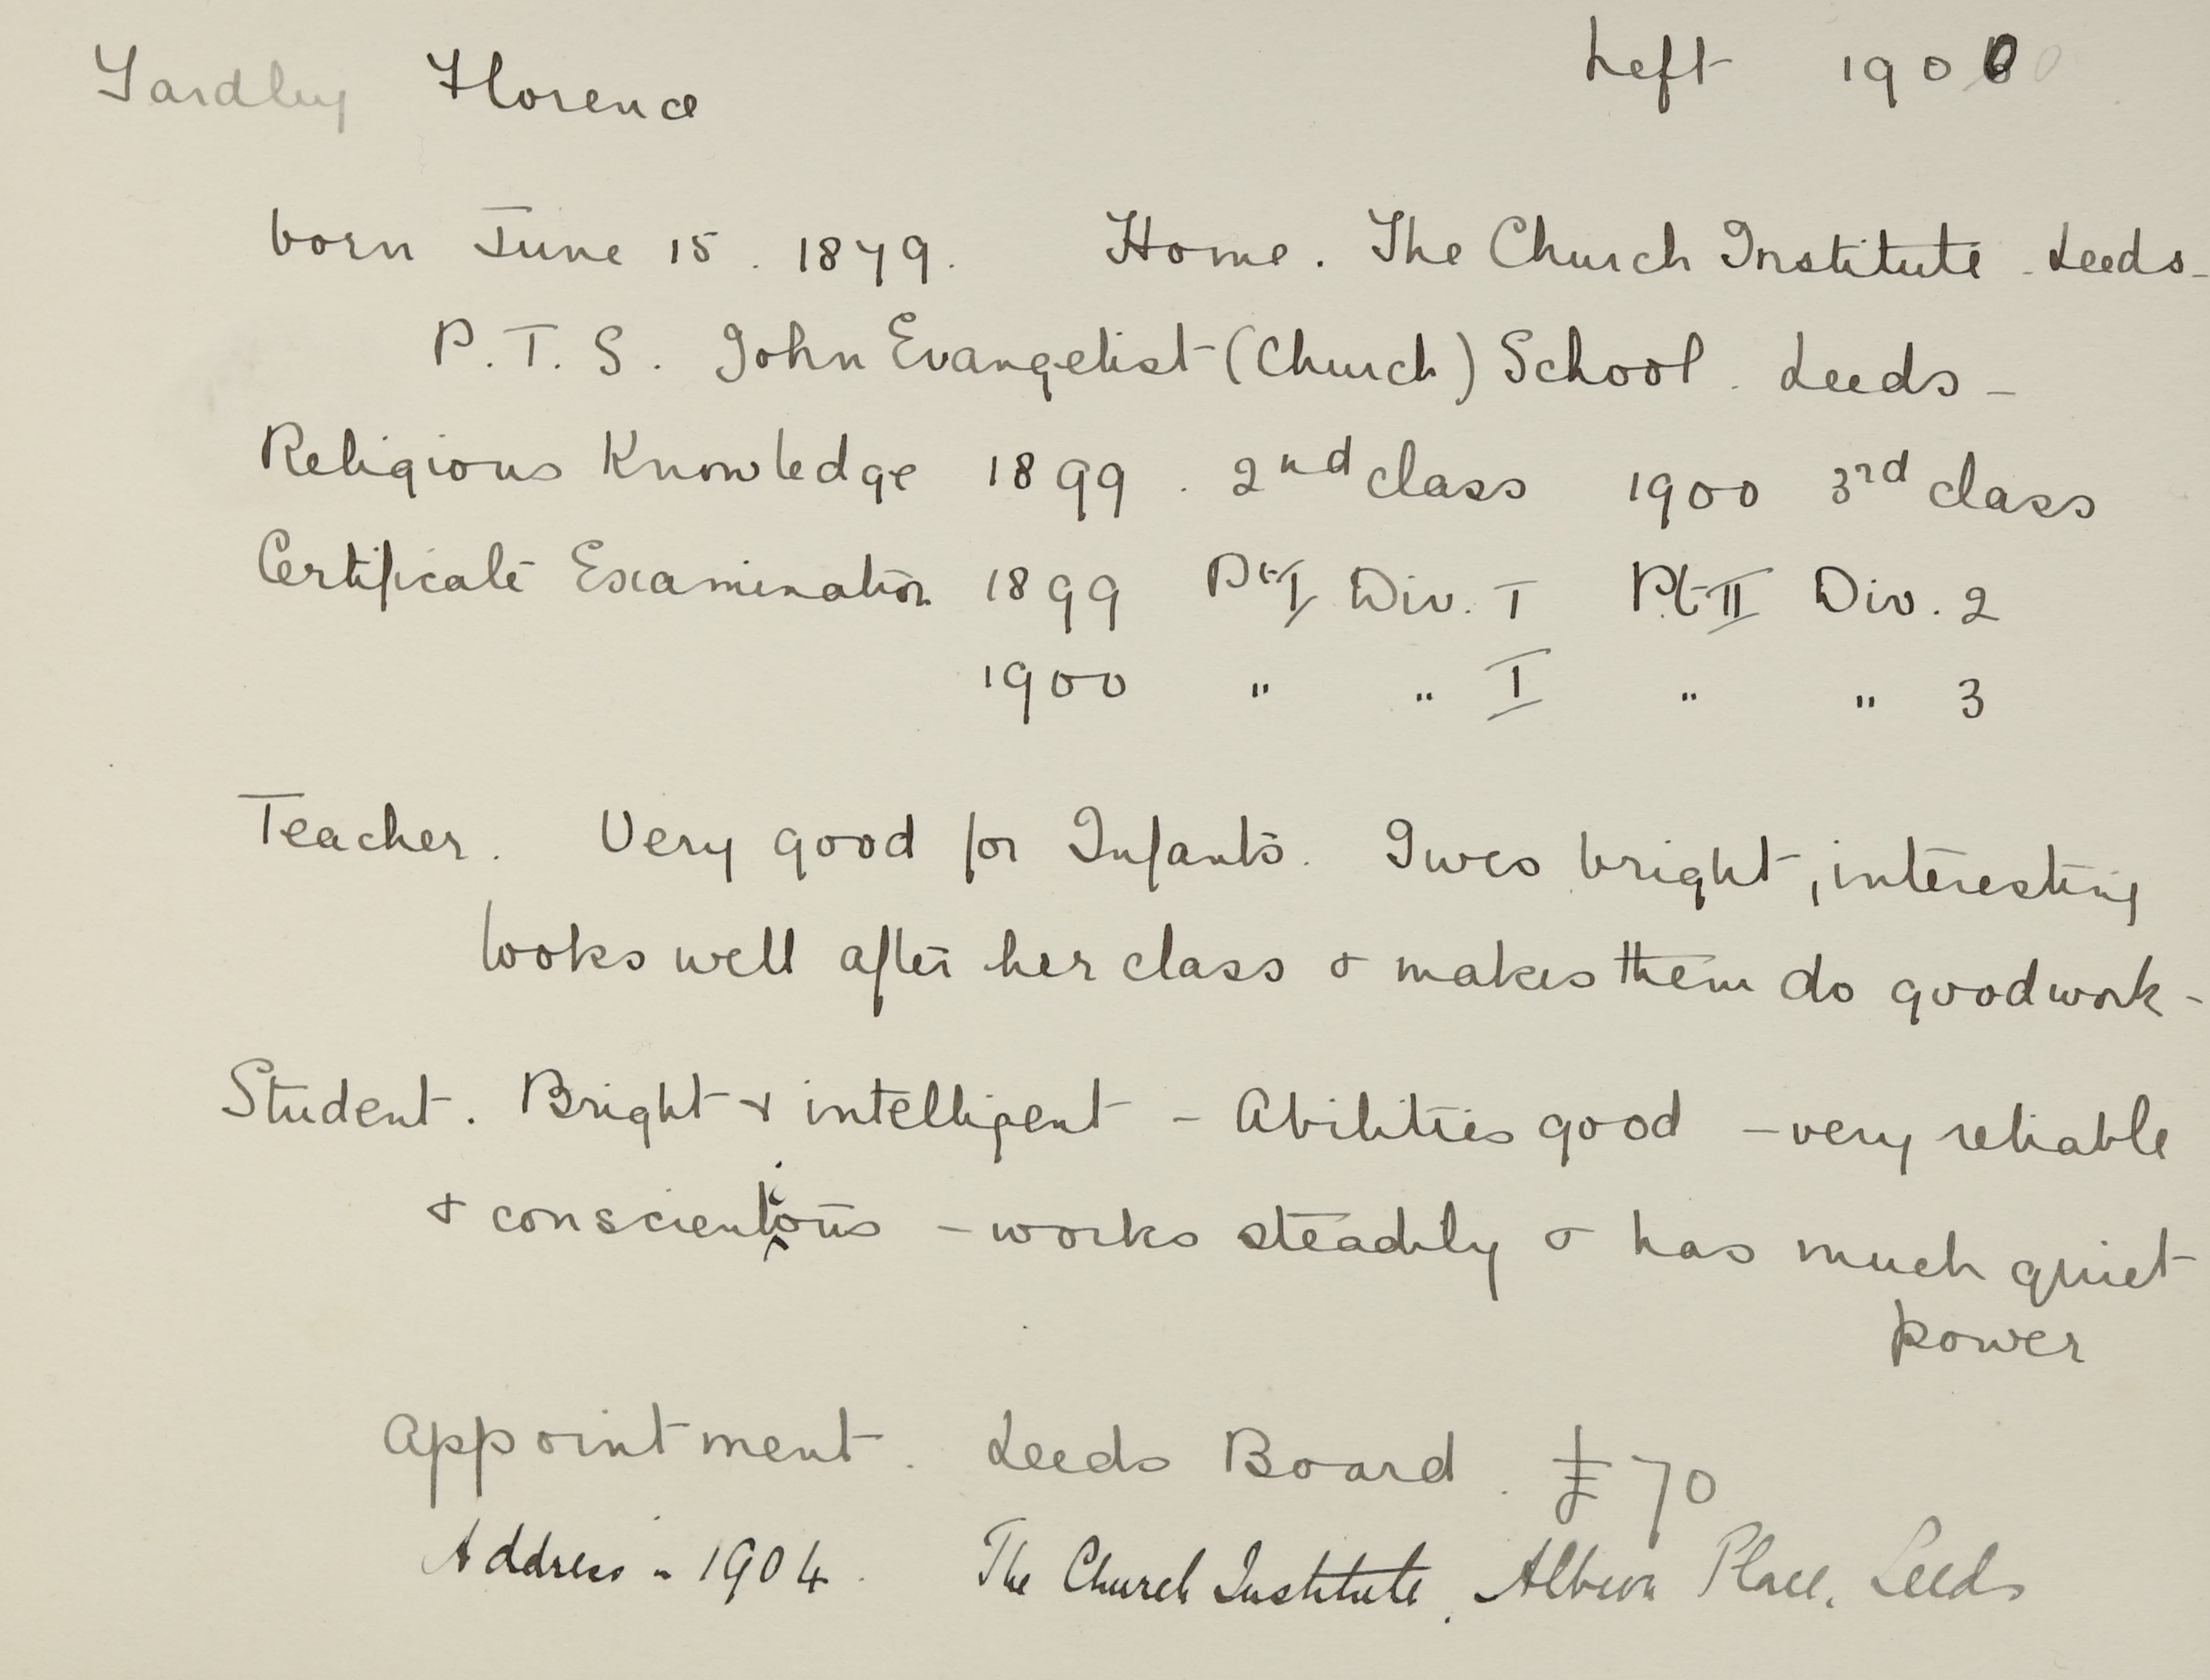 Yardley Florence Left 1900
born June 15. 1879. Home. The Church Institute - Leeds -
P. T. S. John Evangelist (Church) School. Leeds -
Religious Knowledge 1899. 2nd class 1900 3rd class
Certificate Examination 1899 Pt I Div. I Pt II Div. 2
1900 " " I " " 3
Teacher. Very good for Infants. Gives bright, interesting
looks well after her class & makes them do good work -
Student. Bright & intelligent - Abilities good - very reliable
& conscientious - works steadily & has much quiet
power
Appointment. Leeds Board. £70
Address - 1904. The Church Institute, Albion Place, Leeds